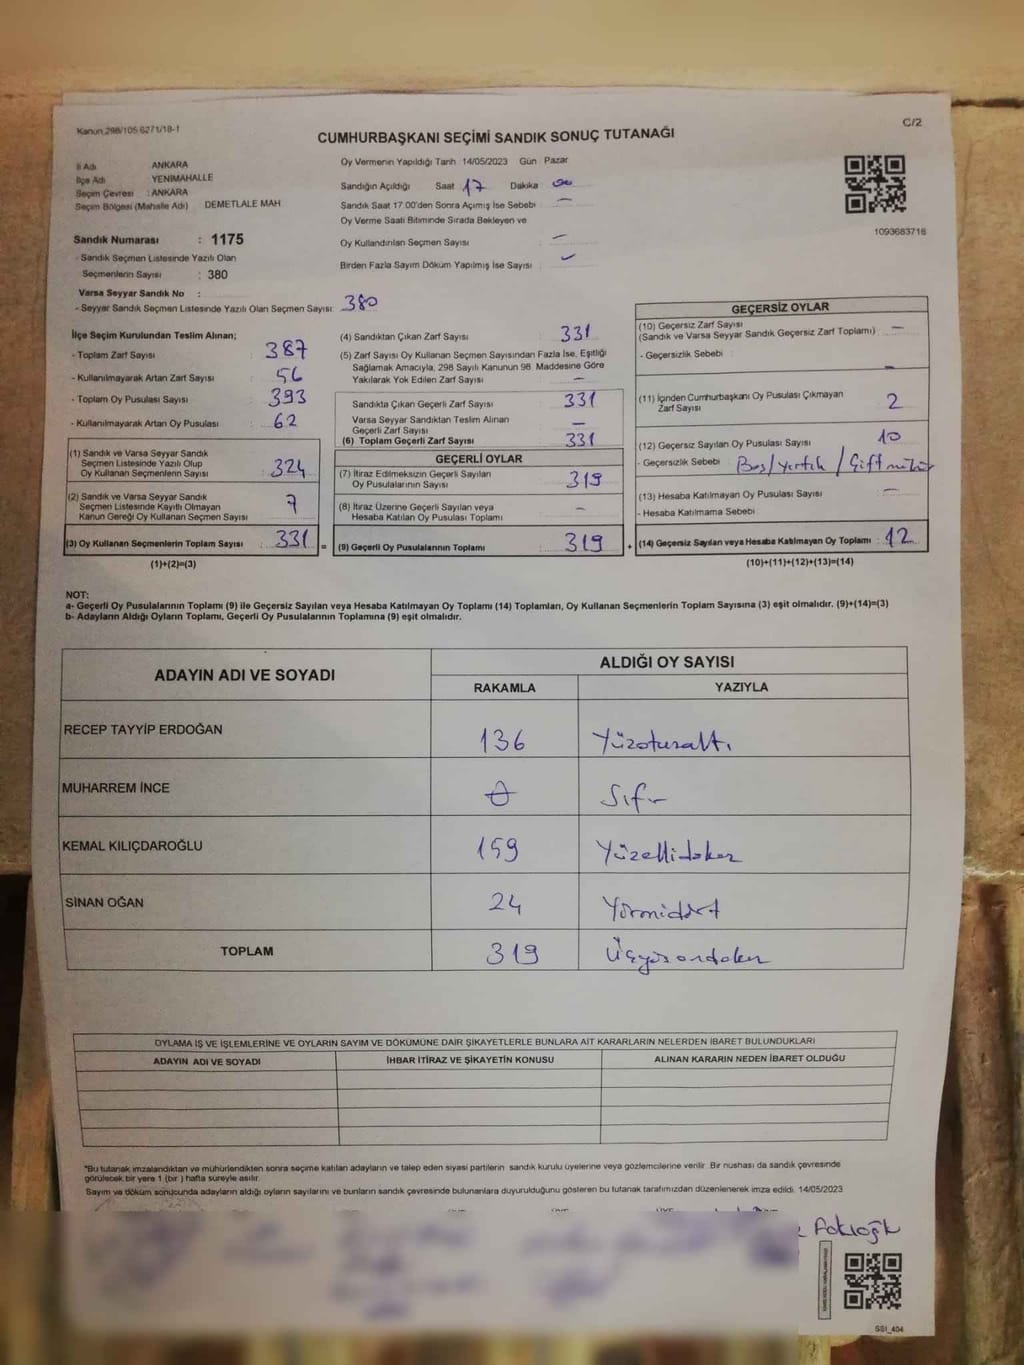 Kanun 298/105 6271/18-1
C/2
CUMHURBAŞKANI SEÇİMİ SANDIK SONUÇ TUTANAĞI
İl Adı ANKARA
İlçe Adı YENİMAHALLE
Seçim Çevresi : ANKARA
Seçim Bölgesi (Mahalle Adı) DEMETLALE MAH
Sandık Numarası : 1175
- Sandık Seçmen Listesinde Yazılı Olan
Seçmenlerin Sayısı : 380
Varsa Seyyar Sandık No :
- Seyyar Sandık Seçmen Listesinde Yazılı Olan Seçmen Sayısı: 380
Oy Vermenin Yapıldığı Tarih 14/05/2023 Gün Pazar
Sandığın Açıldığı Saat 17 Dakika 00
Sandık Saat 17:00'den Sonra Açımış İse Sebebi : —
Oy Verme Saati Bitiminde Sırada Bekleyen ve
Oy Kullandırılan Seçmen Sayısı : —
Birden Fazla Sayım Döküm Yapılmış İse Sayısı :
1093683716
İlçe Seçim Kurulundan Teslim Alınan;
- Toplam Zarf Sayısı : 387
- Kullanılmayarak Artan Zarf Sayısı : 56
- Toplam Oy Pusulası Sayısı : 393
- Kullanılmayarak Artan Oy Pusulası : 62
(1) Sandık ve Varsa Seyyar Sandık
Seçmen Listesinde Yazılı Olup
Oy Kullanan Seçmenlerin Sayısı : 324
(2) Sandık ve Varsa Seyyar Sandık
Seçmen Listesinde Kayıtlı Olmayan
Kanun Gereği Oy Kullanan Seçmen Sayısı : 7
(3) Oy Kullanan Seçmenlerin Toplam Sayısı : 331 =
(1)+(2)=(3)
(4) Sandıktan Çıkan Zarf Sayısı : 331
(5) Zarf Sayısı Oy Kullanan Seçmen Sayısından Fazla İse, Eşitliği
Sağlamak Amacıyla, 298 Sayılı Kanunun 98. Maddesine Göre
Yakılarak Yok Edilen Zarf Sayısı : —
Sandıkta Çıkan Geçerli Zarf Sayısı : 331
Varsa Seyyar Sandıktan Teslim Alınan
Geçerli Zarf Sayısı : —
(6) Toplam Geçerli Zarf Sayısı : 331
GEÇERLİ OYLAR
(7) İtiraz Edilmeksizin Geçerli Sayılan
Oy Pusulalarının Sayısı : 319
(8) İtiraz Üzerine Geçerli Sayılan veya
Hesaba Katılan Oy Pusulası Toplamı : —
(9) Geçerli Oy Pusulalarının Toplamı : 319 +
GEÇERSİZ OYLAR
(10) Geçersiz Zarf Sayısı
(Sandık ve Varsa Seyyar Sandık Geçersiz Zarf Toplamı) : —
- Geçersizlik Sebebi : —
(11) İçinden Cumhurbaşkanı Oy Pusulası Çıkmayan
Zarf Sayısı : 2
(12) Geçersiz Sayılan Oy Pusulası Sayısı : 10
- Geçersizlik Sebebi : Boş/yırtık/Çift mühür
(13) Hesaba Katılmayan Oy Pusulası Sayısı : —
- Hesaba Katılmama Sebebi :
(14) Geçersiz Sayılan veya Hesaba Katılmayan Oy Toplamı : 12
(10)+(11)+(12)+(13)=(14)
NOT:
a- Geçerli Oy Pusulalarının Toplamı (9) ile Geçersiz Sayılan veya Hesaba Katılmayan Oy Toplamı (14) Toplamları, Oy Kullanan Seçmenlerin Toplam Sayısına (3) eşit olmalıdır. (9)+(14)=(3)
b- Adayların Aldığı Oyların Toplamı, Geçerli Oy Pusulalarının Toplamına (9) eşit olmalıdır.
ADAYIN ADI VE SOYADI
ALDIĞI OY SAYISI
RAKAMLA YAZIYLA
RECEP TAYYİP ERDOĞAN 136 Yüzotuzaltı
MUHARREM İNCE 0 Sıfır
KEMAL KILIÇDAROĞLU 159 Yüzellidokuz
SİNAN OĞAN 24 Yirmidört
TOPLAM 319 Üçyüzondokuz
OYLAMA İŞ VE İŞLEMLERİNE VE OYLARIN SAYIM VE DÖKÜMÜNE DAİR ŞİKAYETLERLE BUNLARA AİT KARARLARIN NELERDEN İBARET BULUNDUKLARI
ADAYIN ADI VE SOYADI İHBAR İTİRAZ VE ŞİKAYETİN KONUSU ALINAN KARARIN NEDEN İBARET OLDUĞU
"Bu tutanak imzalandıktan ve mühürlendikten sonra seçime katılan adayların ve talep eden siyasi partilerin sandık kurulu üyelerine veya gözlemcilerine verilir. Bir nushası da sandık çevresinde
görülecek bir yere 1 (bir ) hafta süreyle asılır.
Sayım ve döküm sonucunda adayların aldığı oyların sayılarını ve bunların sandık çevresinde bulunanlara duyurulduğunu gösteren bu tutanak tarafımızdan düzenlenerek imza edildi. 14/05/2023
SSI_404